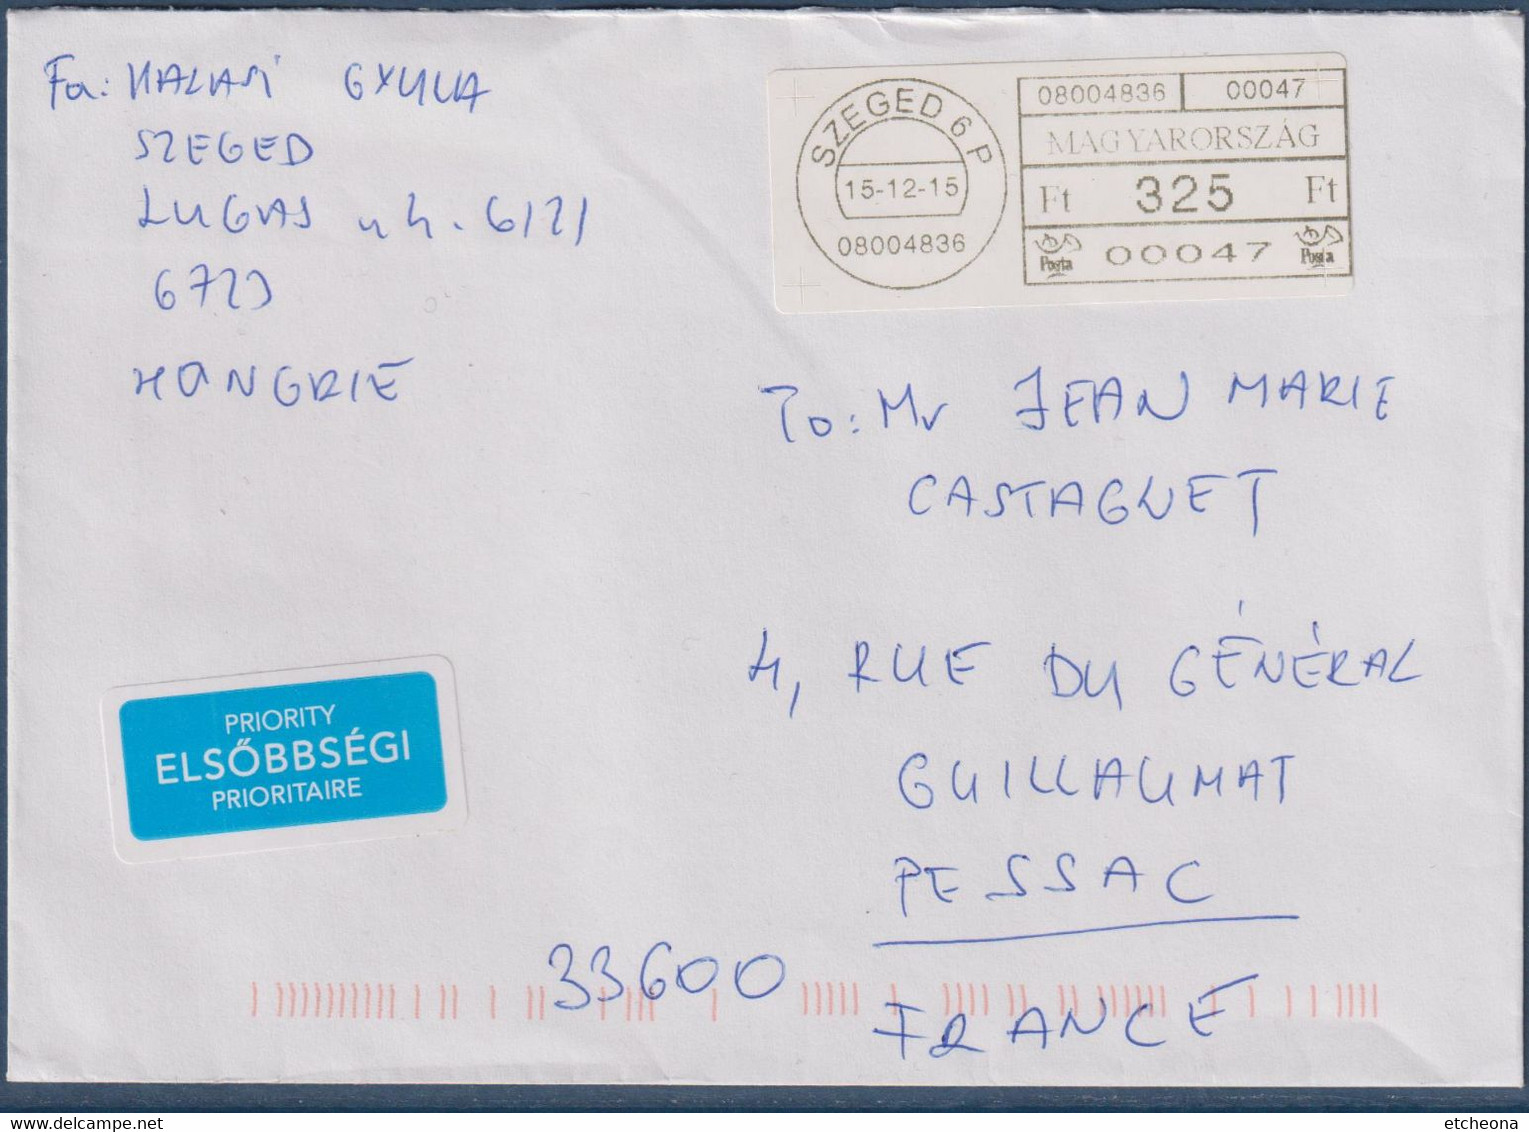 GYULA
SZEGED
LUGAS u
6723
HONGRIE
SZEGED 6 P
15-12-15
08004836
08004836 00047
MAGYARORSZÁG
Ft 325 Ft
Posta 00047 Posta
To: Mr JEAN MARIE
CASTAGNET
4, RUE DU GÉNÉRAL
GUILLAUMAT
PESSAC
33600
FRANCE
PRIORITY
ELSŐBBSÉGI
PRIORITAIRE
etcheona